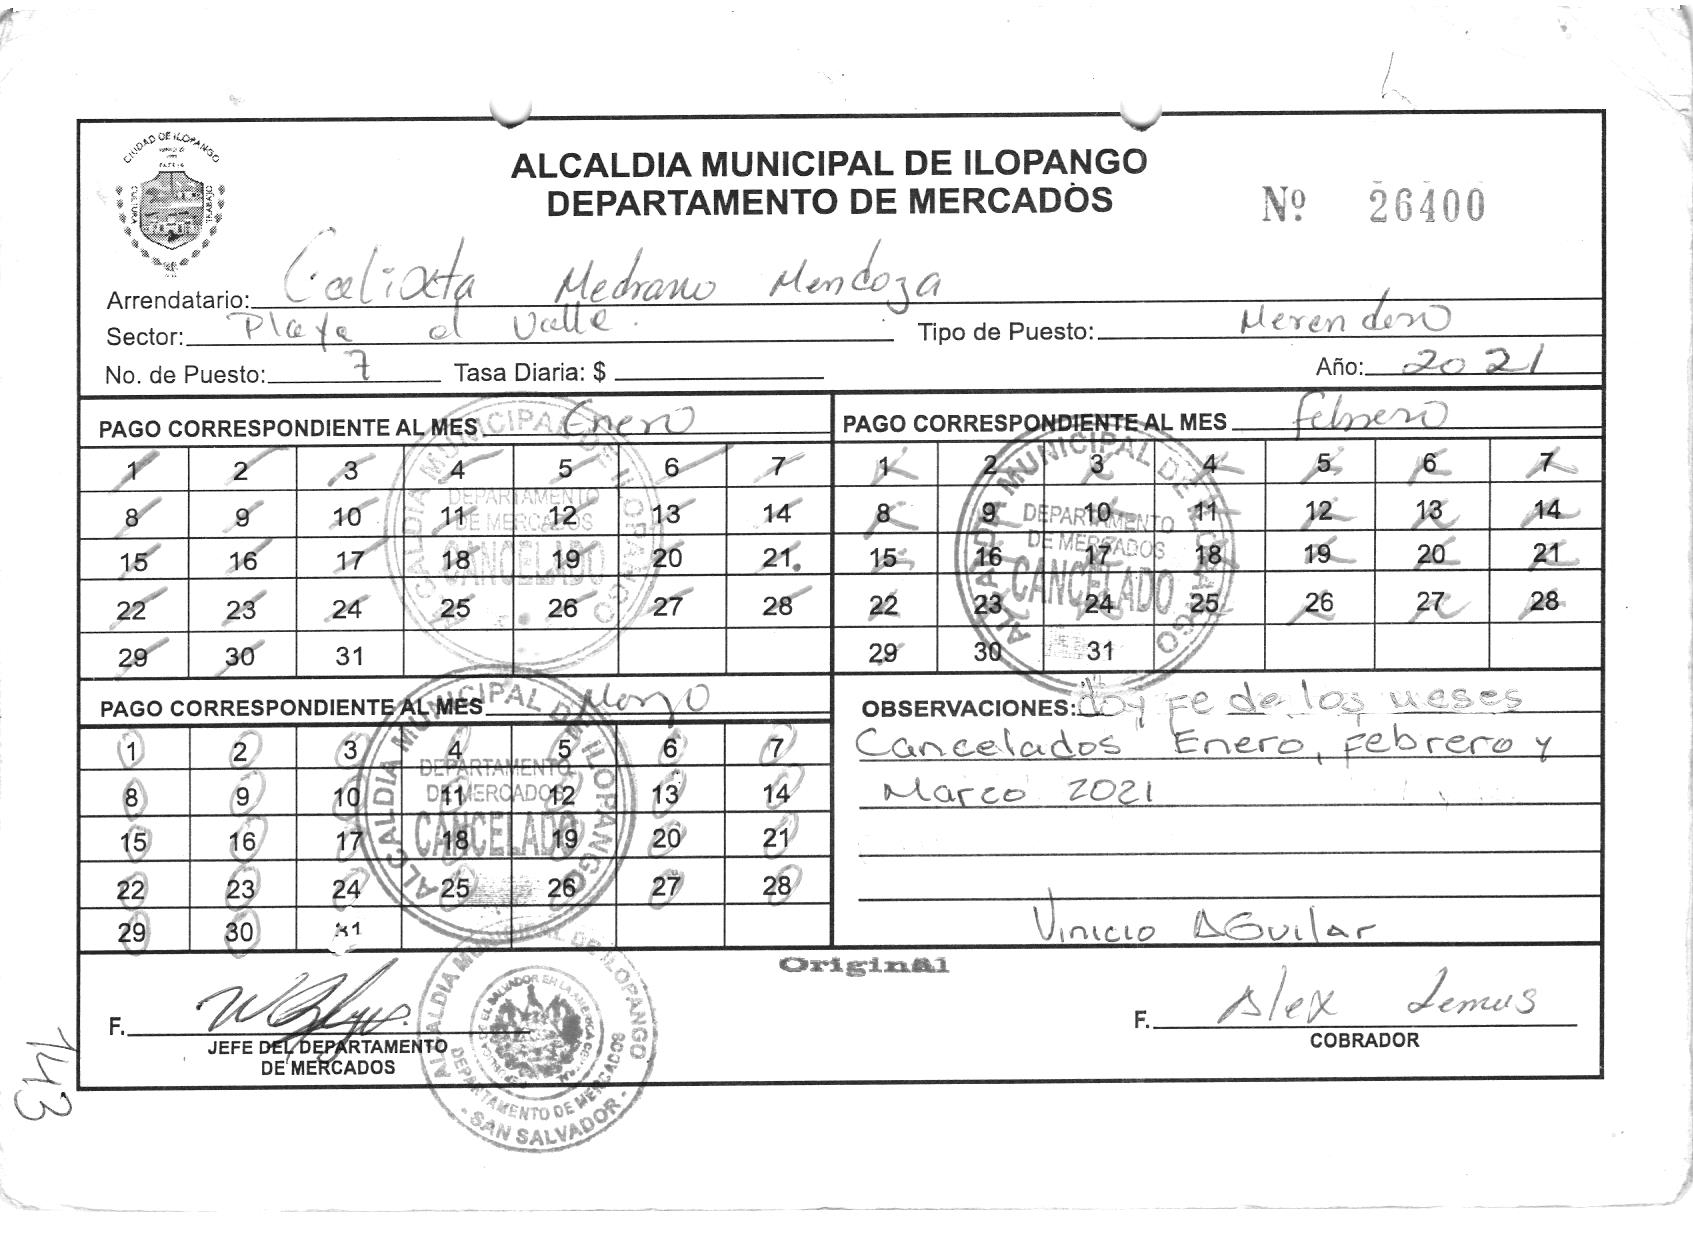 CIUDAD DE ILOPANGO
CULTURA
TRABAJO
ALCALDIA MUNICIPAL DE ILOPANGO
DEPARTAMENTO DE MERCADOS
Nº 26400
Arrendatario: Calixta Medrano Mendoza
Sector: Playa el Valle. Tipo de Puesto: Merendero
No. de Puesto: 7 Tasa Diaria: $ Año: 2021
PAGO CORRESPONDIENTE AL MES Enero
1 2 3 4 5 6 7
8 9 10 11 12 13 14
15 16 17 18 19 20 21
22 23 24 25 26 27 28
29 30 31
ALCALDIA MUNICIPAL DE ILOPANGO
DEPARTAMENTO
DE MERCADOS
CANCELADO
PAGO CORRESPONDIENTE AL MES Febrero
1 2 3 4 5 6 7
8 9 10 11 12 13 14
15 16 17 18 19 20 21
22 23 24 25 26 27 28
29 30 31
ALCALDIA MUNICIPAL DE ILOPANGO
DEPARTAMENTO
DE MERCADOS
CANCELADO
PAGO CORRESPONDIENTE AL MES Marzo
1 2 3 4 5 6 7
8 9 10 11 12 13 14
15 16 17 18 19 20 21
22 23 24 25 26 27 28
29 30 31
ALCALDIA MUNICIPAL DE ILOPANGO
DEPARTAMENTO
DE MERCADOS
CANCELADO
OBSERVACIONES: doy Fe de los meses
Cancelados Enero, febrero y
Marzo 2021
Vinicio Aguilar
Original
F.
JEFE DEL DEPARTAMENTO
DE MERCADOS
ALCALDIA MUNICIPAL DE ILOPANGO
DEPARTAMENTO DE MERCADOS
- SAN SALVADOR -
F. Alex Lemus
COBRADOR
143